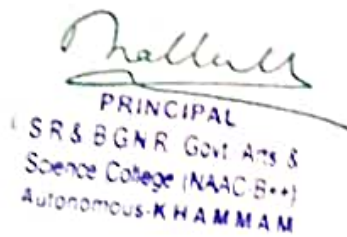 PRINCIPAL
SR & BGNR Govt Arts &
Science College (NAAC-B++)
Autonomous-KHAMMAM